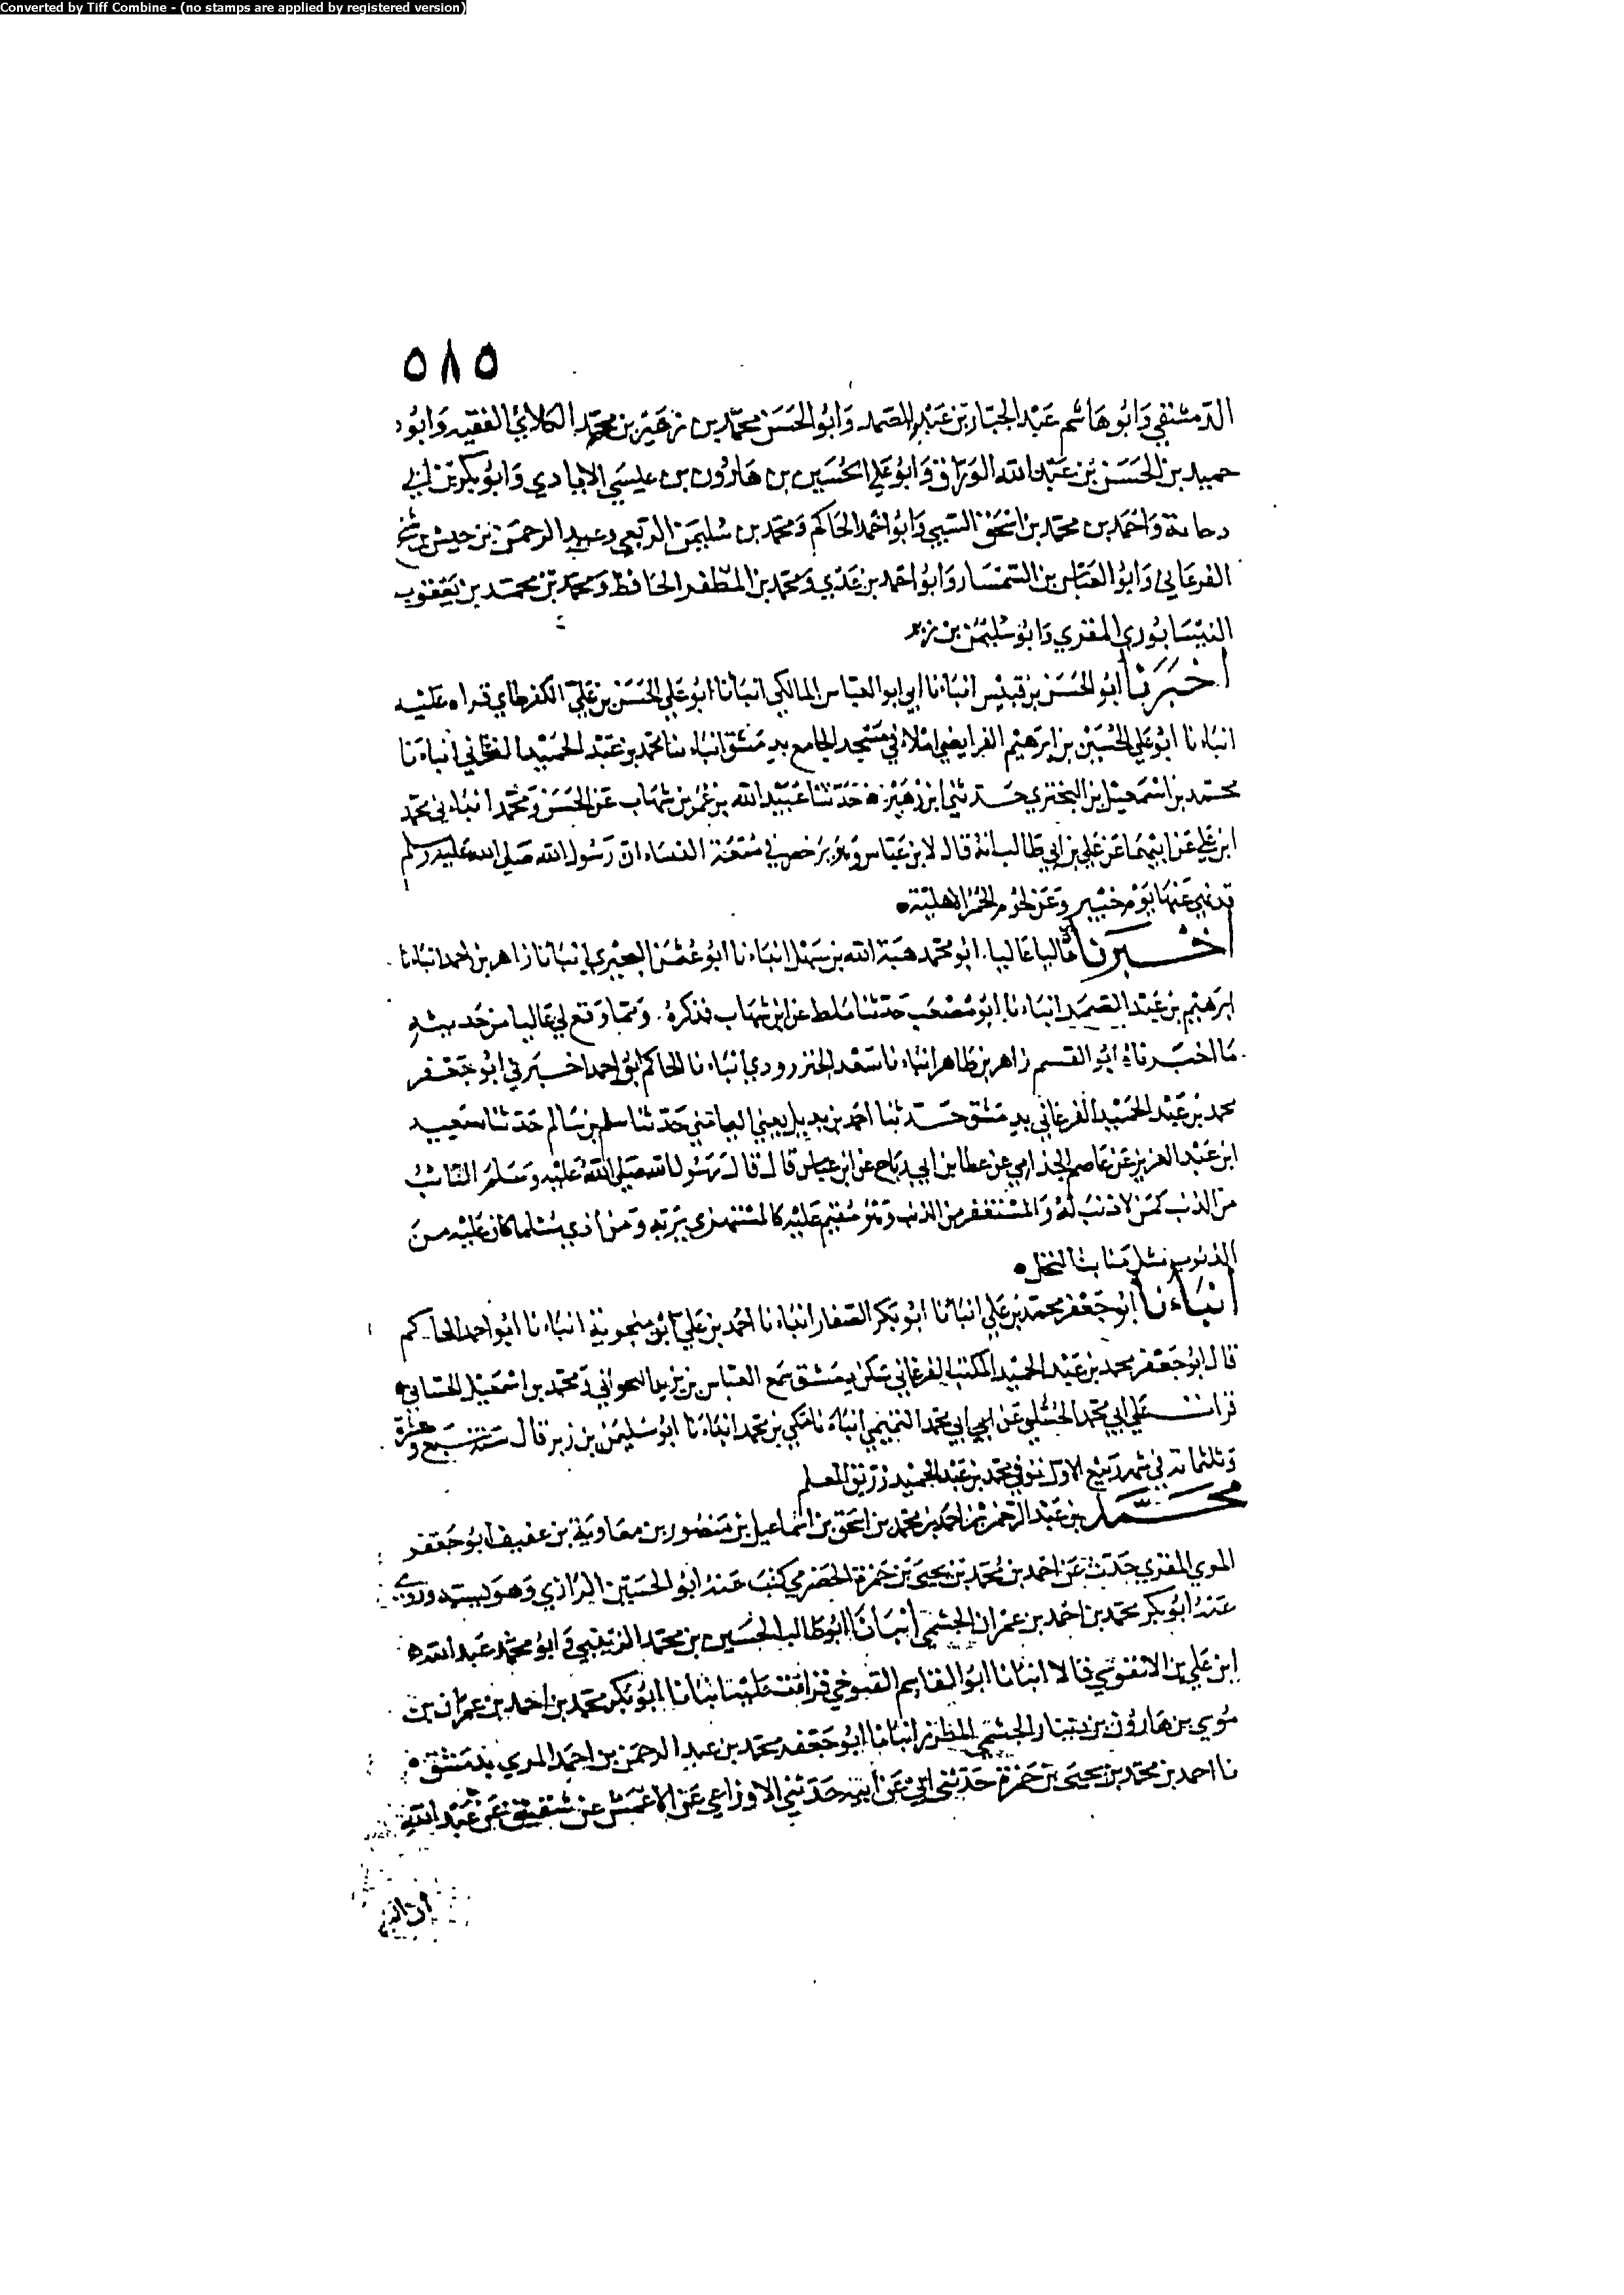 Converted by Tiff Combine - (no stamps are applied by registered version)
٥٨٥
الدمشقي وابو هاشم عبد الجبار بن عبد الصمد وابو الحسن محمد بن زهير بن محمد الكلابي الفقيه وابو
حميد بن الحسن بن عبد الله الوراق وابو علي الحسين بن هارون بن عيسي الايادي وابو بكر بن ابي
دجانة واحمد بن محمد بن اسحق السني وابو احمد الحاكم ومحمد بن سليمن الربعي وعبد الرحمن بن حبيش بن شيخ
الفرغاني وابو العباس بن السمسار وابو احمد بن عدي ومحمد بن المظفر الحافظ ومحمد بن محمد بن يعقوب
النيسابوري المقري وابو سليمن بن زبر
اخبرنا ابو الحسن بن قبيس انباءنا ابي ابو العباس المالكي انبانا ابو علي الحسن بن علي الكفرطابي قراه عليه
انباءنا ابو علي الحسين بن ابرهيم الفرايضي املاء في مسجد الجامع بدمشق انباءنا محمد بن عبد الحميد الفرغاني انباءنا
محمد بن اسمعيل بن البختري حدثني ابن زهير حدثنا عبيد الله بن عمر بن شهاب عن الحسن ومحمد انباء ني محمد
ابن علي عن ابيهما عن علي بن ابي طالب انه قال لابن عباس وهو يرخص في متعة النساء ان رسول الله صلي الله عليه وسلم
قد نهي عنها يوم خيبر وعن لحوم الحمر الاهلية
اخبرنا عاليا ابو محمد هبة الله بن سهل انباءنا ابو عثمن البحيري انبانا زاهر بن احمد انباءنا
ابرهيم بن عبد الصمد انباءنا ابو مصعب حدثنا ملك عن ابن شهاب فذكره ومما وقع لي عاليا من حديثه
ما اخبرناه ابو القسم زاهر بن طاهر انباءنا سعد الجنزرودي انباءنا الحاكم ابو احمد اخبرني ابو جعفر
محمد بن عبد الحميد الفرغاني بدمشق حدثنا احمد بن بديل يعني اليامي حدثنا سلم بن سالم حدثنا سعيد
ابن عبد العزيز عن عاصم الجذامي عن عطا بن ابي رباح عن ابن عباس قال قال رسول الله صلي الله عليه وسلم التائب
من الذنب كمن لا ذنب له والمستغفر من الذنب وهو مقيم عليه كالمستهزي بربه ومن اذي مسلما كان عليه من
الذنوب مثل منابت النخل
انباءنا ابو جعفر محمد بن علي انبانا ابو بكر الصفار انباءنا احمد بن علي بن منجويه انباءنا ابو احمد الحاكم
قال ابو جعفر محمد بن عبد الحميد المكتب الفرغاني سكن دمشق سمع العباس بن يزيد البحراني ومحمد بن اسمعيل الحساني
قرات علي ابي محمد السلمي عن ابي محمد التميمي انباءنا مكي بن محمد انباءنا ابو سليمن بن زبر قال سنة سبع وعشرة
وثلثماىة في شهر ربيع الاول توفي محمد بن عبد الحميد زريق المعلم
محمد بن عبد الرحمن بن احمد بن محمد بن اسحق بن اسماعيل بن منصور بن معاوية بن عفيف ابو جعفر
المري المقري حدث عن احمد بن محمد بن يحيي بن حمزة الحضرمي كتب عنه ابو الحسين الرازي وهو نسبه وروي
عنه ابو بكر محمد بن احمد بن عمران الجشمي انبانا ابو طالب الحسين بن محمد الزينبي وابو محمد عبد الله
ابن علي بن الابنوسي قالا انبانا ابو القاسم التنوخي قراءة علينا انبانا ابو بكر محمد بن احمد بن عمران بن
موسي بن هارون بن دينار الجشمي المطرز انبانا ابو جعفر محمد بن عبد الرحمن بن احمد المري بدمشق
نا احمد بن محمد بن يحيي بن حمزة حدثني ابي عن ابيه حدثني الاوزاعي عن الاعمش عن شقيق عن عبد الله